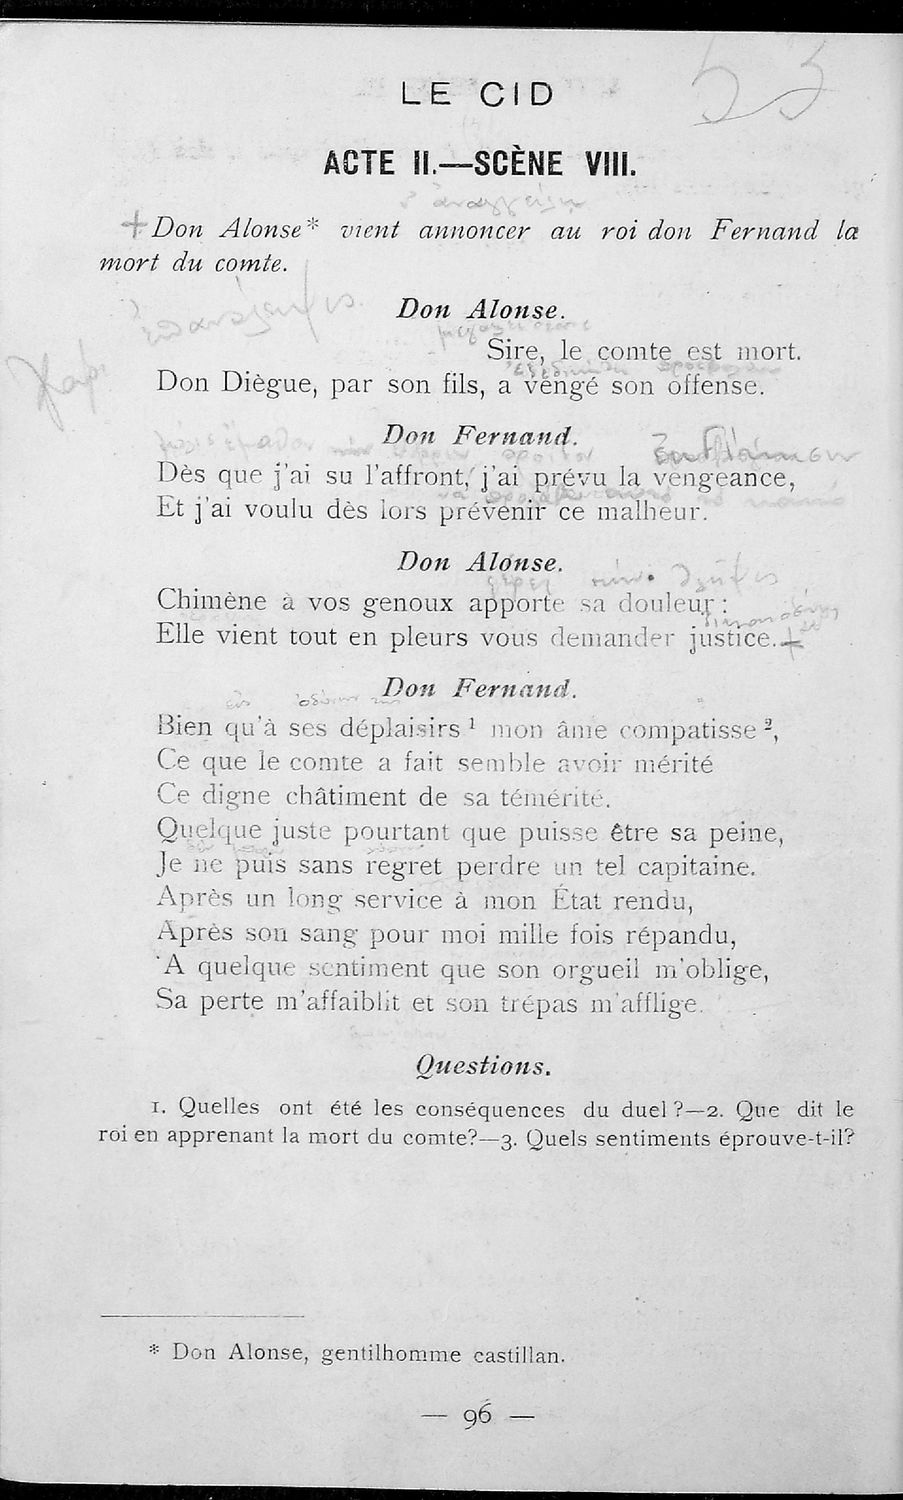 53
LE CID
ACTE II.—SCÈNE VIII.
Don Alonse* vient annoncer au roi don Fernand la
mort du comte.
Don Alonse.
Sire, le comte est mort.
Don Diègue, par son fils, a vengé son offense.
Don Fernand.
Dès que j'ai su l'affront, j'ai prévu la vengeance,
Et j'ai voulu dès lors prévenir ce malheur.
Don Alonse.
Chimène à vos genoux apporte sa douleur :
Elle vient tout en pleurs vous demander justice.
Don Fernand.
Bien qu'à ses déplaisirs ¹ mon âme compatisse ²,
Ce que le comte a fait semble avoir mérité
Ce digne châtiment de sa témérité.
Quelque juste pourtant que puisse être sa peine,
Je ne puis sans regret perdre un tel capitaine.
Après un long service à mon État rendu,
Après son sang pour moi mille fois répandu,
'A quelque sentiment que son orgueil m'oblige,
Sa perte m'affaiblit et son trépas m'afflige.
Questions.
1. Quelles ont été les conséquences du duel ?—2. Que dit le
roi en apprenant la mort du comte?—3. Quels sentiments éprouve-t-il?
* Don Alonse, gentilhomme castillan.
— 96 —